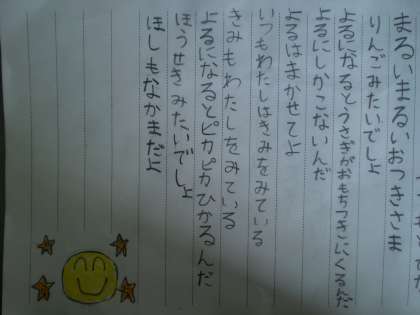 まるいまるいおつきさま
りんごみたいでしょ
よるになるとうさぎがおもちつきにくるんだ
よるにしかこないんだ
よるはまかせてよ
いつもわたしはきみをみている
きみもわたしをみている
よるになるとピカピカひかるんだ
ほうせきみたいでしょ
ほしもなかまだよ